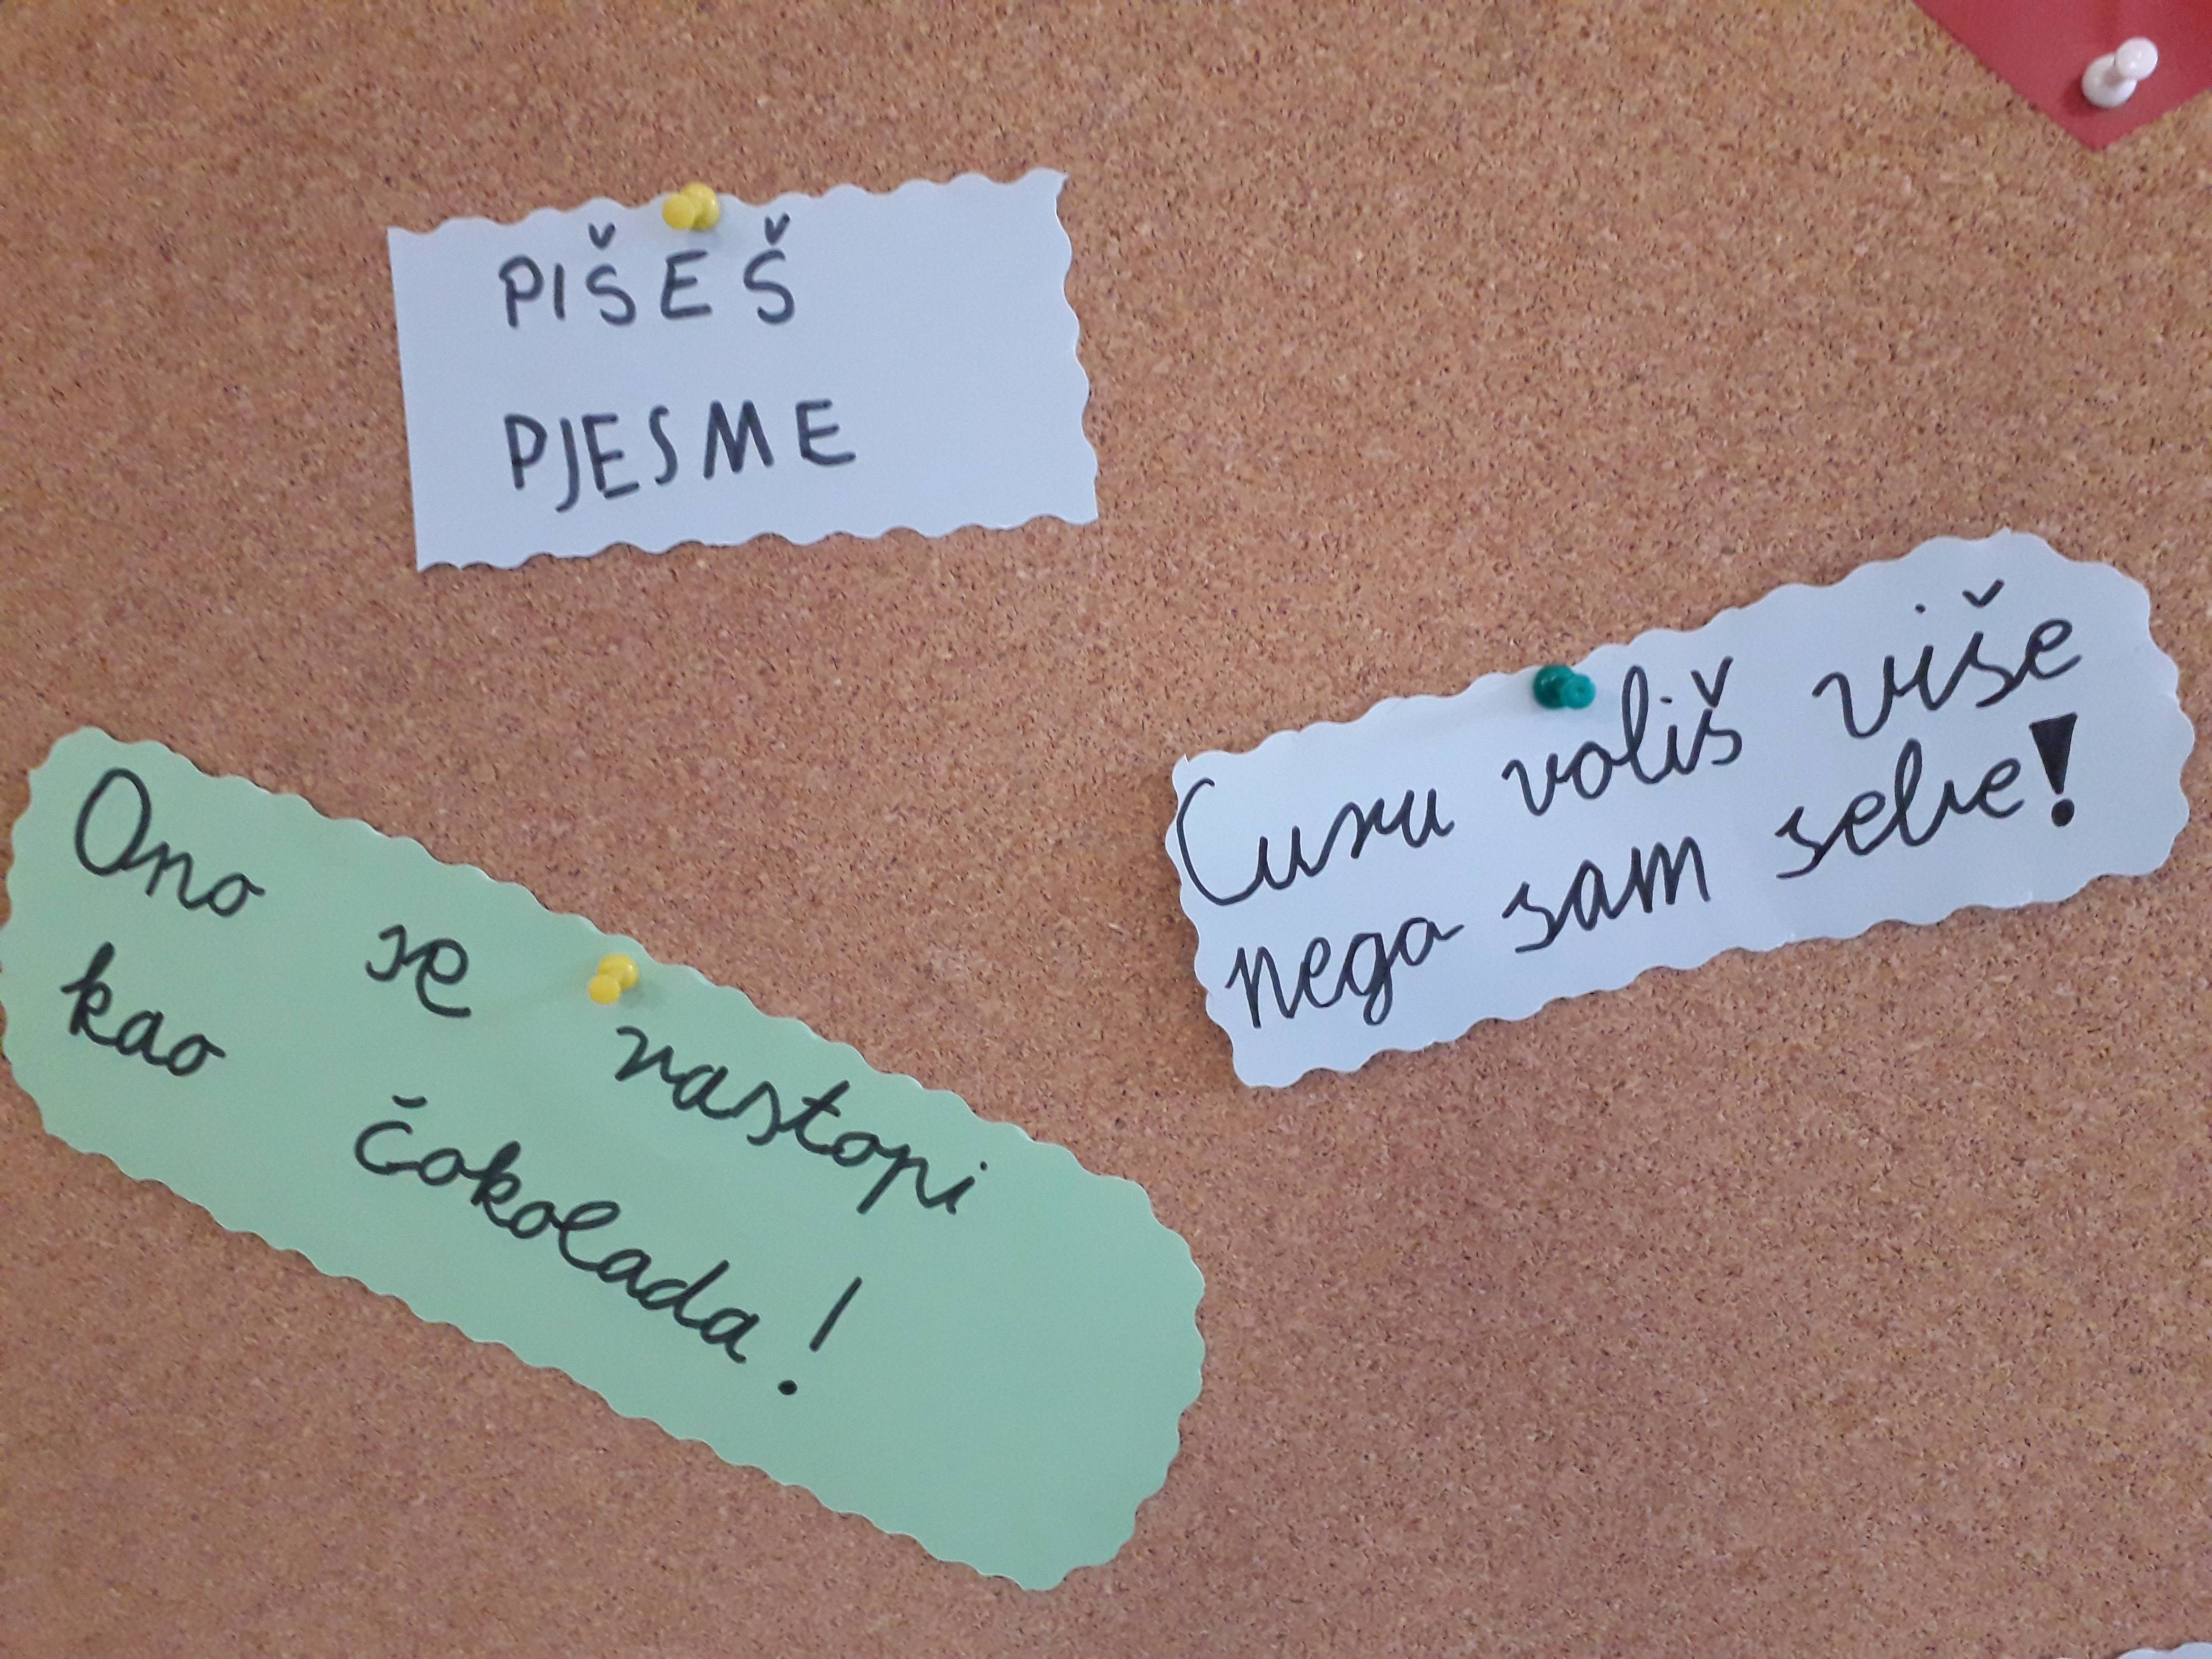 PIŠEŠ
PJESME
Curu voliš više
nego sam sebe!
Ono se rastopi
kao čokolada!